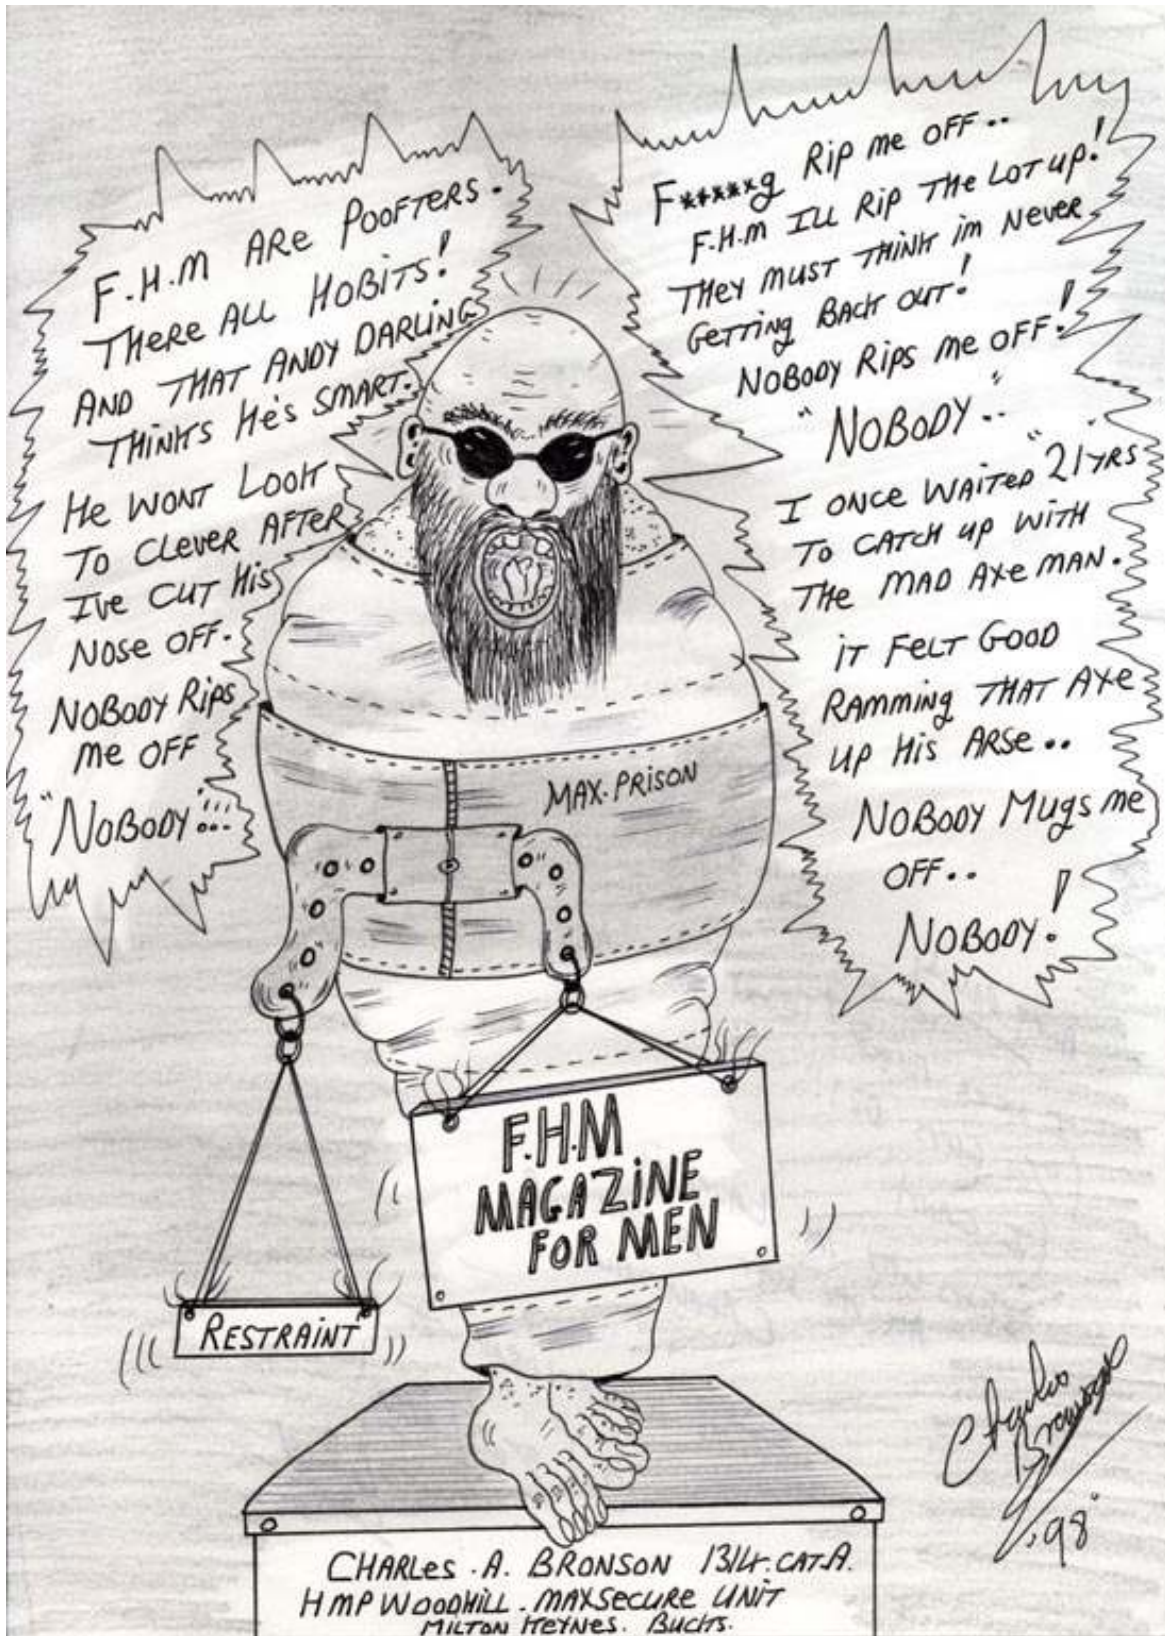 F.H.M ARe POOFTERS.
THeRe ALL HOBiTS!
AND THAT ANDY DARLiNG
THiNKS He's SMART.
He WONT LOOK
TO CLeveR AFTeR
I've CUT His
NOSe OFF.
NOBODY Rips
me OFF
"NOBODY"!!!...
F*****g Rip me OFF..
F.H.m ILL Rip THe LOT up!
THey MUST THiNK im NeveR
GeTTiNg BACK OUT!
NOBODY Rips me OFF!
"NOBODY.."
I ONCe WAiTeD "21"YRS
TO CATCH up WiTH
THe MAD AXe MAN.
iT FeLT GOOD
RAMMiNg THAT AXe
UP His ARSe..
NOBODY Mugs me
OFF..
NOBODY!
MAX-PRiSON
F.H.M
MAGAZiNE
FOR MEN
RESTRAiNT
Charles
Bronson
'98"
CHARLes .A. BRONSON 1314. CAT.A.
HMP WOODHiLL. MAXSeCURe UNiT
MiLTON KeYNeS. BUCKS.